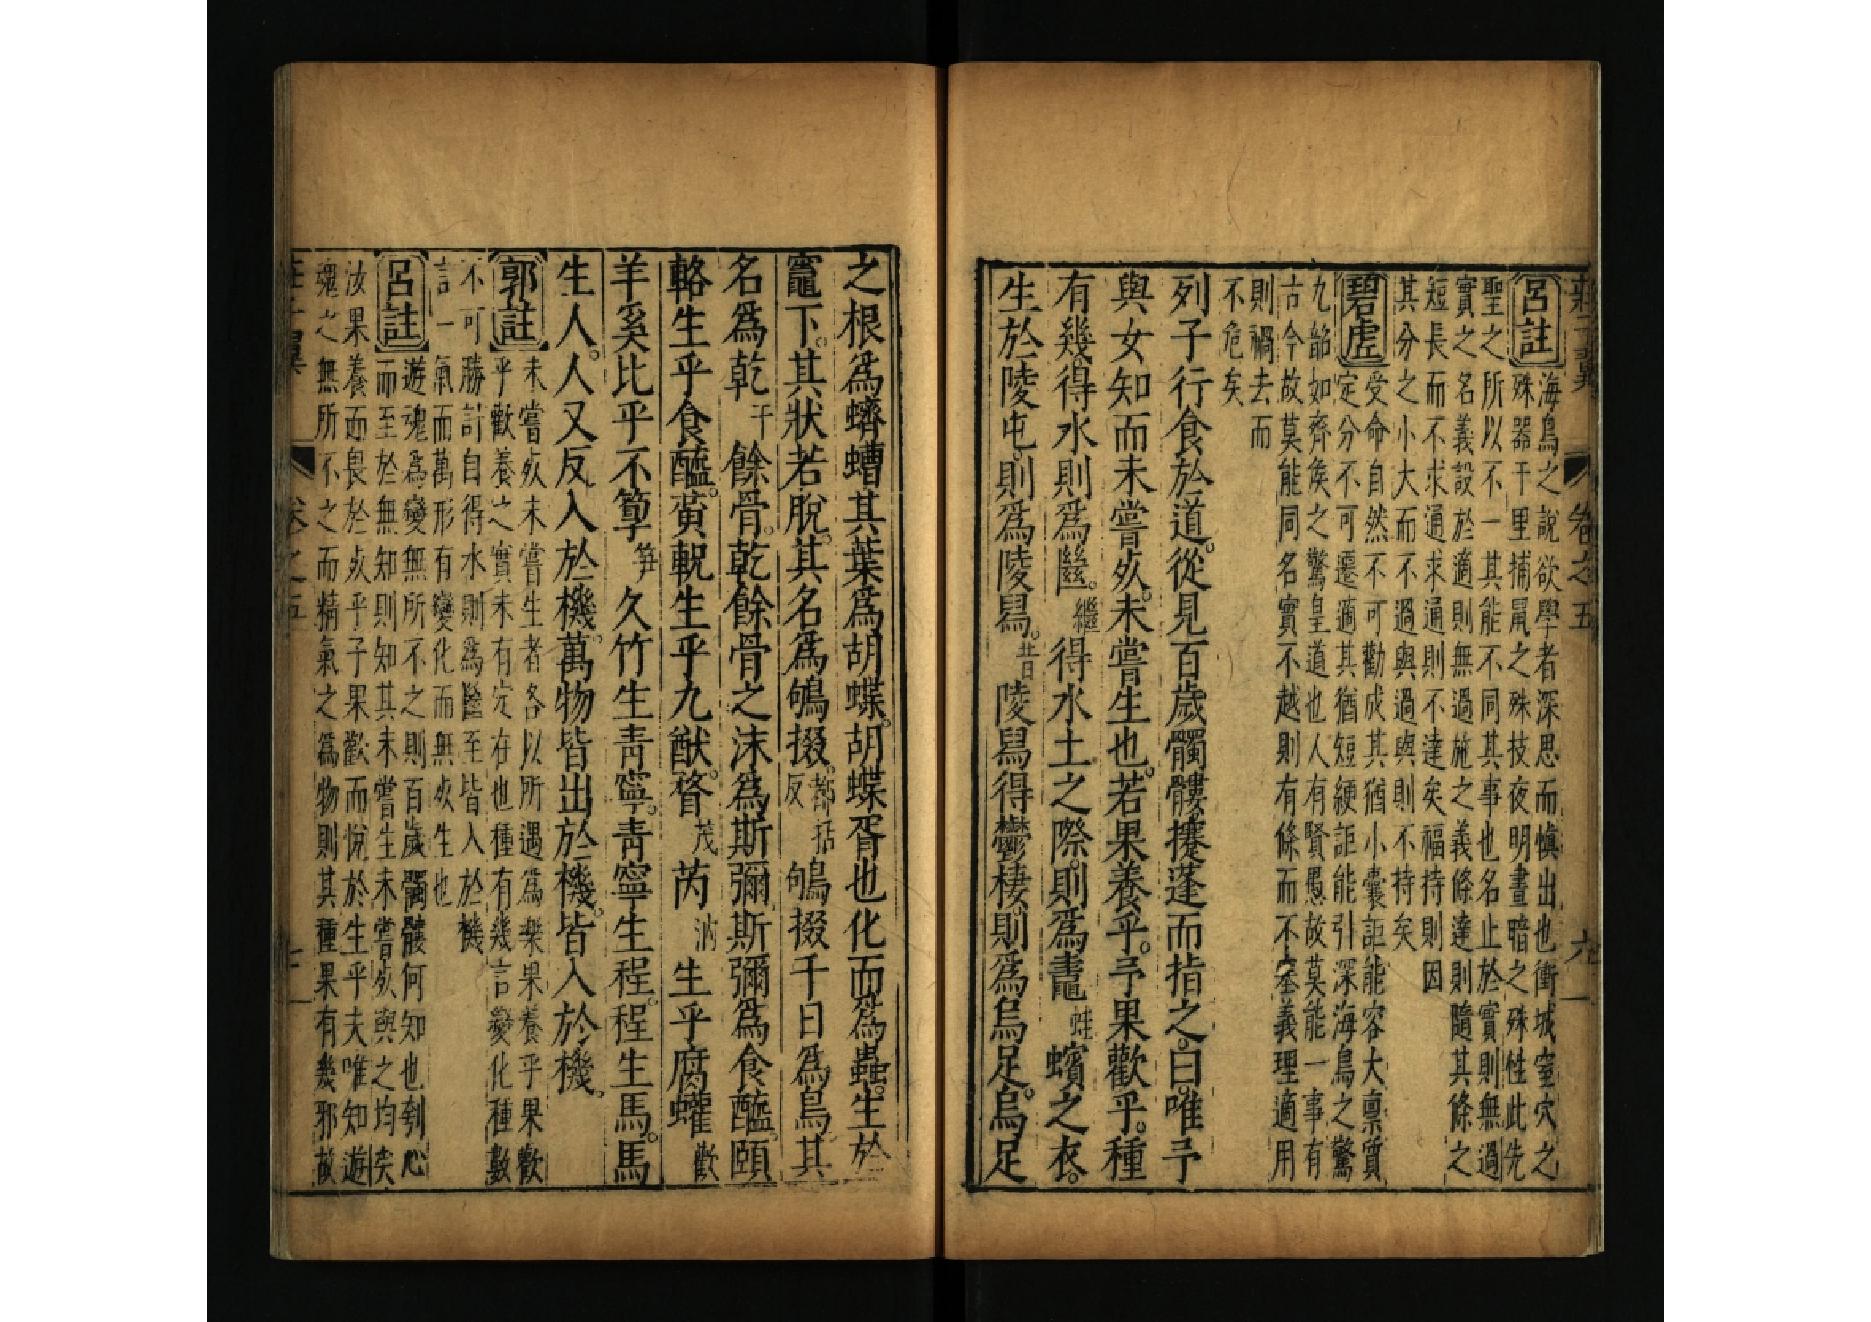 莊子翼 卷之五 九
呂註 海鳥之說欲學者深思而慎出也衝城窒穴之
殊器千里捕鼠之殊技夜明晝暗之殊性此先
聖之所以不一其能不同其事也名止於實則無過
實之名義設於適則無過施之義條達則隨其條之
短長而不求通求通則不達矣福持則因
其分之小大而不過與過與則不持矣
碧虛 受命自然不可勸成其猶小囊詎能容大禀質
定分不可遷適其猶短綆詎能引深海鳥之驚
九韶如齊侯之驚皇道也人有賢愚故莫能一事有
古今故莫能同名實不越則有條而不塞義理適用
則禍去而
不危矣
列子行食於道。從見百歲髑髏攓蓬而指之。曰。唯予
與女知而未嘗死。未嘗生也。若果養乎。予果歡乎。種
有幾。得水則爲㡭。繼 得水土之際。則爲鼃 蛙 蠙之衣。
生於陵屯。則爲陵舄。昔 陵舄得鬱棲。則爲烏足。烏足
之根爲蠐螬其葉爲胡蝶。胡蝶胥也化而爲蟲。生於
竈下。其狀若脫。其名爲鴝掇。都括反 鴝掇千日爲鳥。其
名爲乾 干 餘骨。乾餘骨之沫爲斯彌斯彌爲食醯。頤
輅生乎食醯。黃軦生乎九猷。瞀 茂 芮 汭 生乎腐蠸 歡
羊奚比乎不箰 笋 久竹生靑寧。靑寧生程。程生馬。馬
生人。人又反入於機。萬物皆出於機。皆入於機。
郭註 未嘗死未嘗生者各以所遇爲樂果養乎果歡
乎歡養之實未有定在也種有幾言變化種數
不可勝計自得水則爲㡭至皆入於機
言一氣而萬形有變化而無死生也
呂註 遊魂爲變無所不之則百歲髑髏何知也刳心
而至於無知則知其未嘗生未嘗死與之均矣
汝果養而畏於死乎予果歡而悅於生乎夫唯知遊
魂之無所不之而精氣之爲物則其種果有幾邪故
莊子翼 卷之五